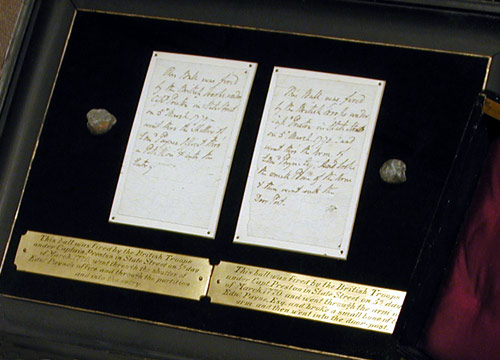 This Ball was fired
by the British troops under
Capt Preston in State Street
on 5 March 1770
went thro the Shutter of
Edwd Paynes
& into the
This Ball was fired
by the British troops under
Capt Preston in State Street
on 5 March 1770, and
went thro the Arm of
Edwd Payne Esq, and broke
the small bone of the Arm
& then went into the
Door Post.
This ball was fired by the British Troops
under Capt. Preston in State Street on 5th day
of March, 1770 and went through the shutter of
Edw. Payne's office and through the partition
and into the entry.
This ball was fired by the British Troops
under Capt. Preston in State Street on 5th day
of March, 1770 and went through the arm of
Edw. Payne, Esq. and broke a small bone of the
arm and then went into the door-post.